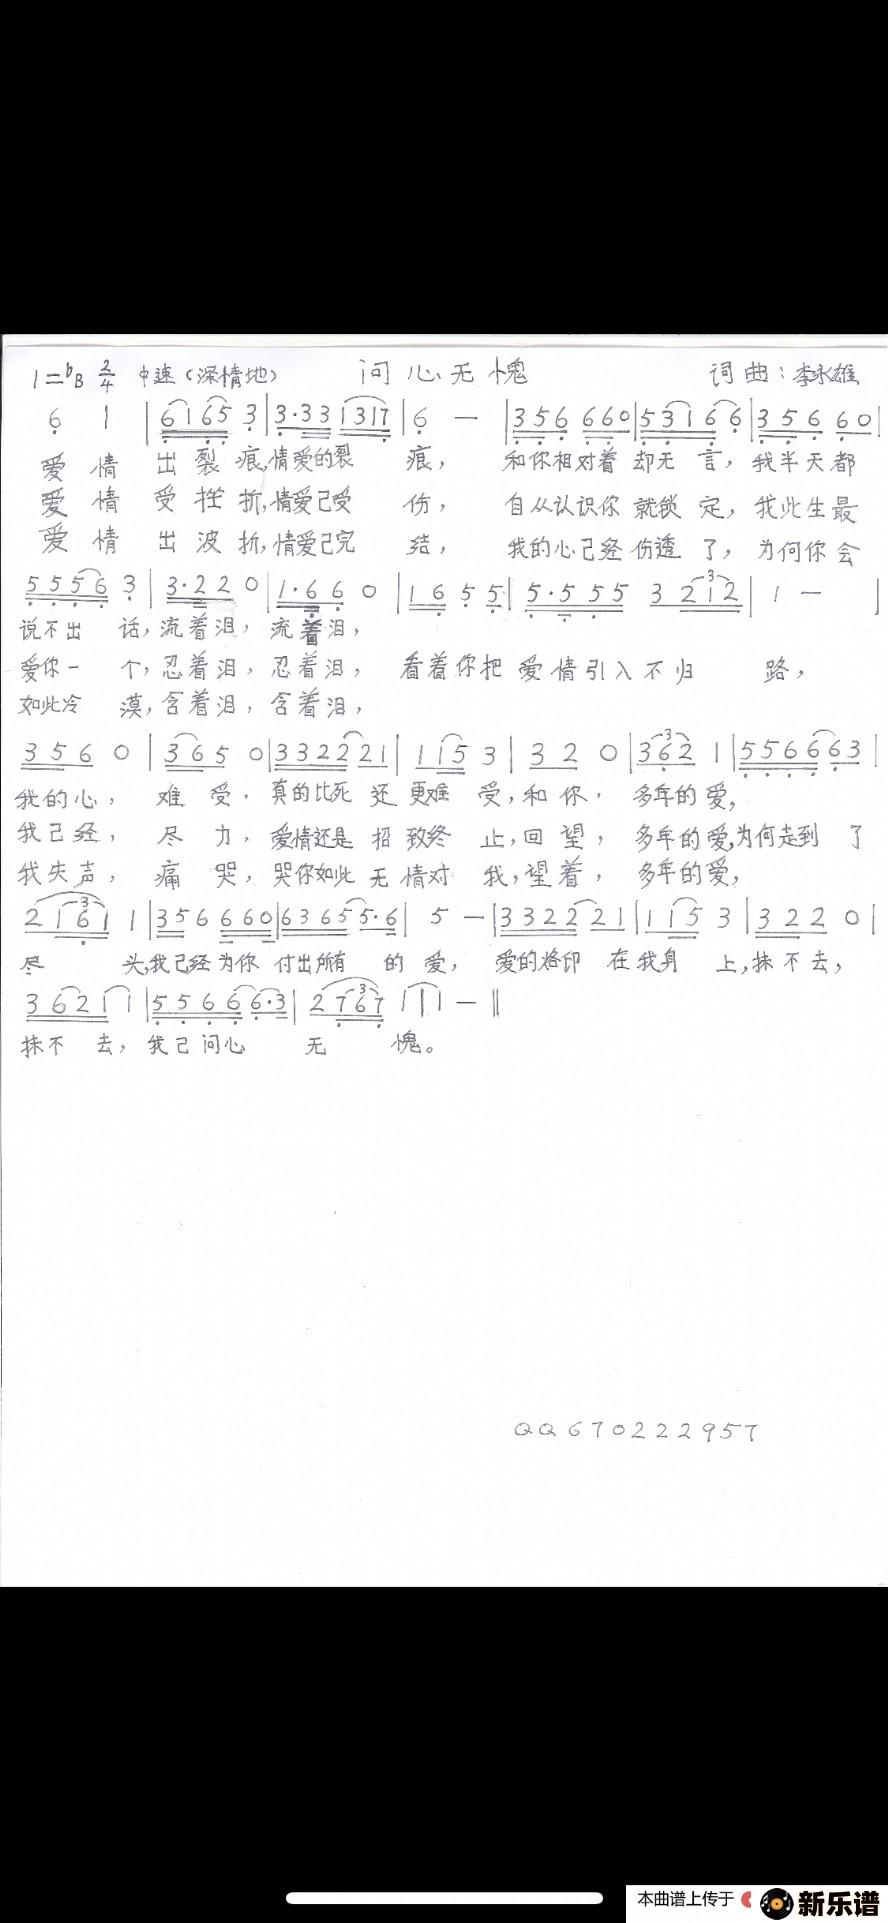 1=♭B 2/4 中速（深情地） 问心无愧 词曲：李永雄
6 1 | 6165 3 | 3·33 1317 | 6 — | 356 660 | 5316 6 | 356 60 |
爱情 出裂痕,情爱的裂 痕， 和你相对着 却无言，我半天都
爱情 受挫折,情爱己受 伤， 自从认识你 就锁定，我此生最
爱情 出波折,情爱己完 结， 我的心己经 伤透了，为何你会
5556 3 | 3·22 0 | 1·66 0 | 16 5 5 | 5·555 3 212 | 1 — |
说不出 话,流着泪，流着泪，
爱你一 个,忍着泪，忍着泪， 看着你把 爱情引入不归 路，
如此冷 漠,含着泪，含着泪，
356 0 | 365 0 | 3322 21 | 115 3 | 32 0 | 362 1 | 5566 63 |
我的心， 难受，真的比死 还更难 受,和你，多年的爱，
我己经， 尽力，爱情还是 招致终 止,回望，多年的爱,为何走到 了
我失声， 痛哭，哭你如此 无情对 我,望着，多年的爱，
2161 1 | 356 660 | 6365 5·6 | 5 — | 3322 21 | 115 3 | 322 0 |
尽 头,我己经为你 付出所有 的爱， 爱的烙印 在我身 上,抹不去，
3621 1 | 5566 6·3 | 2767 1 | 1 — ‖
抹不 去，我己问心 无 愧。
QQ670222957
本曲谱上传于 新乐谱